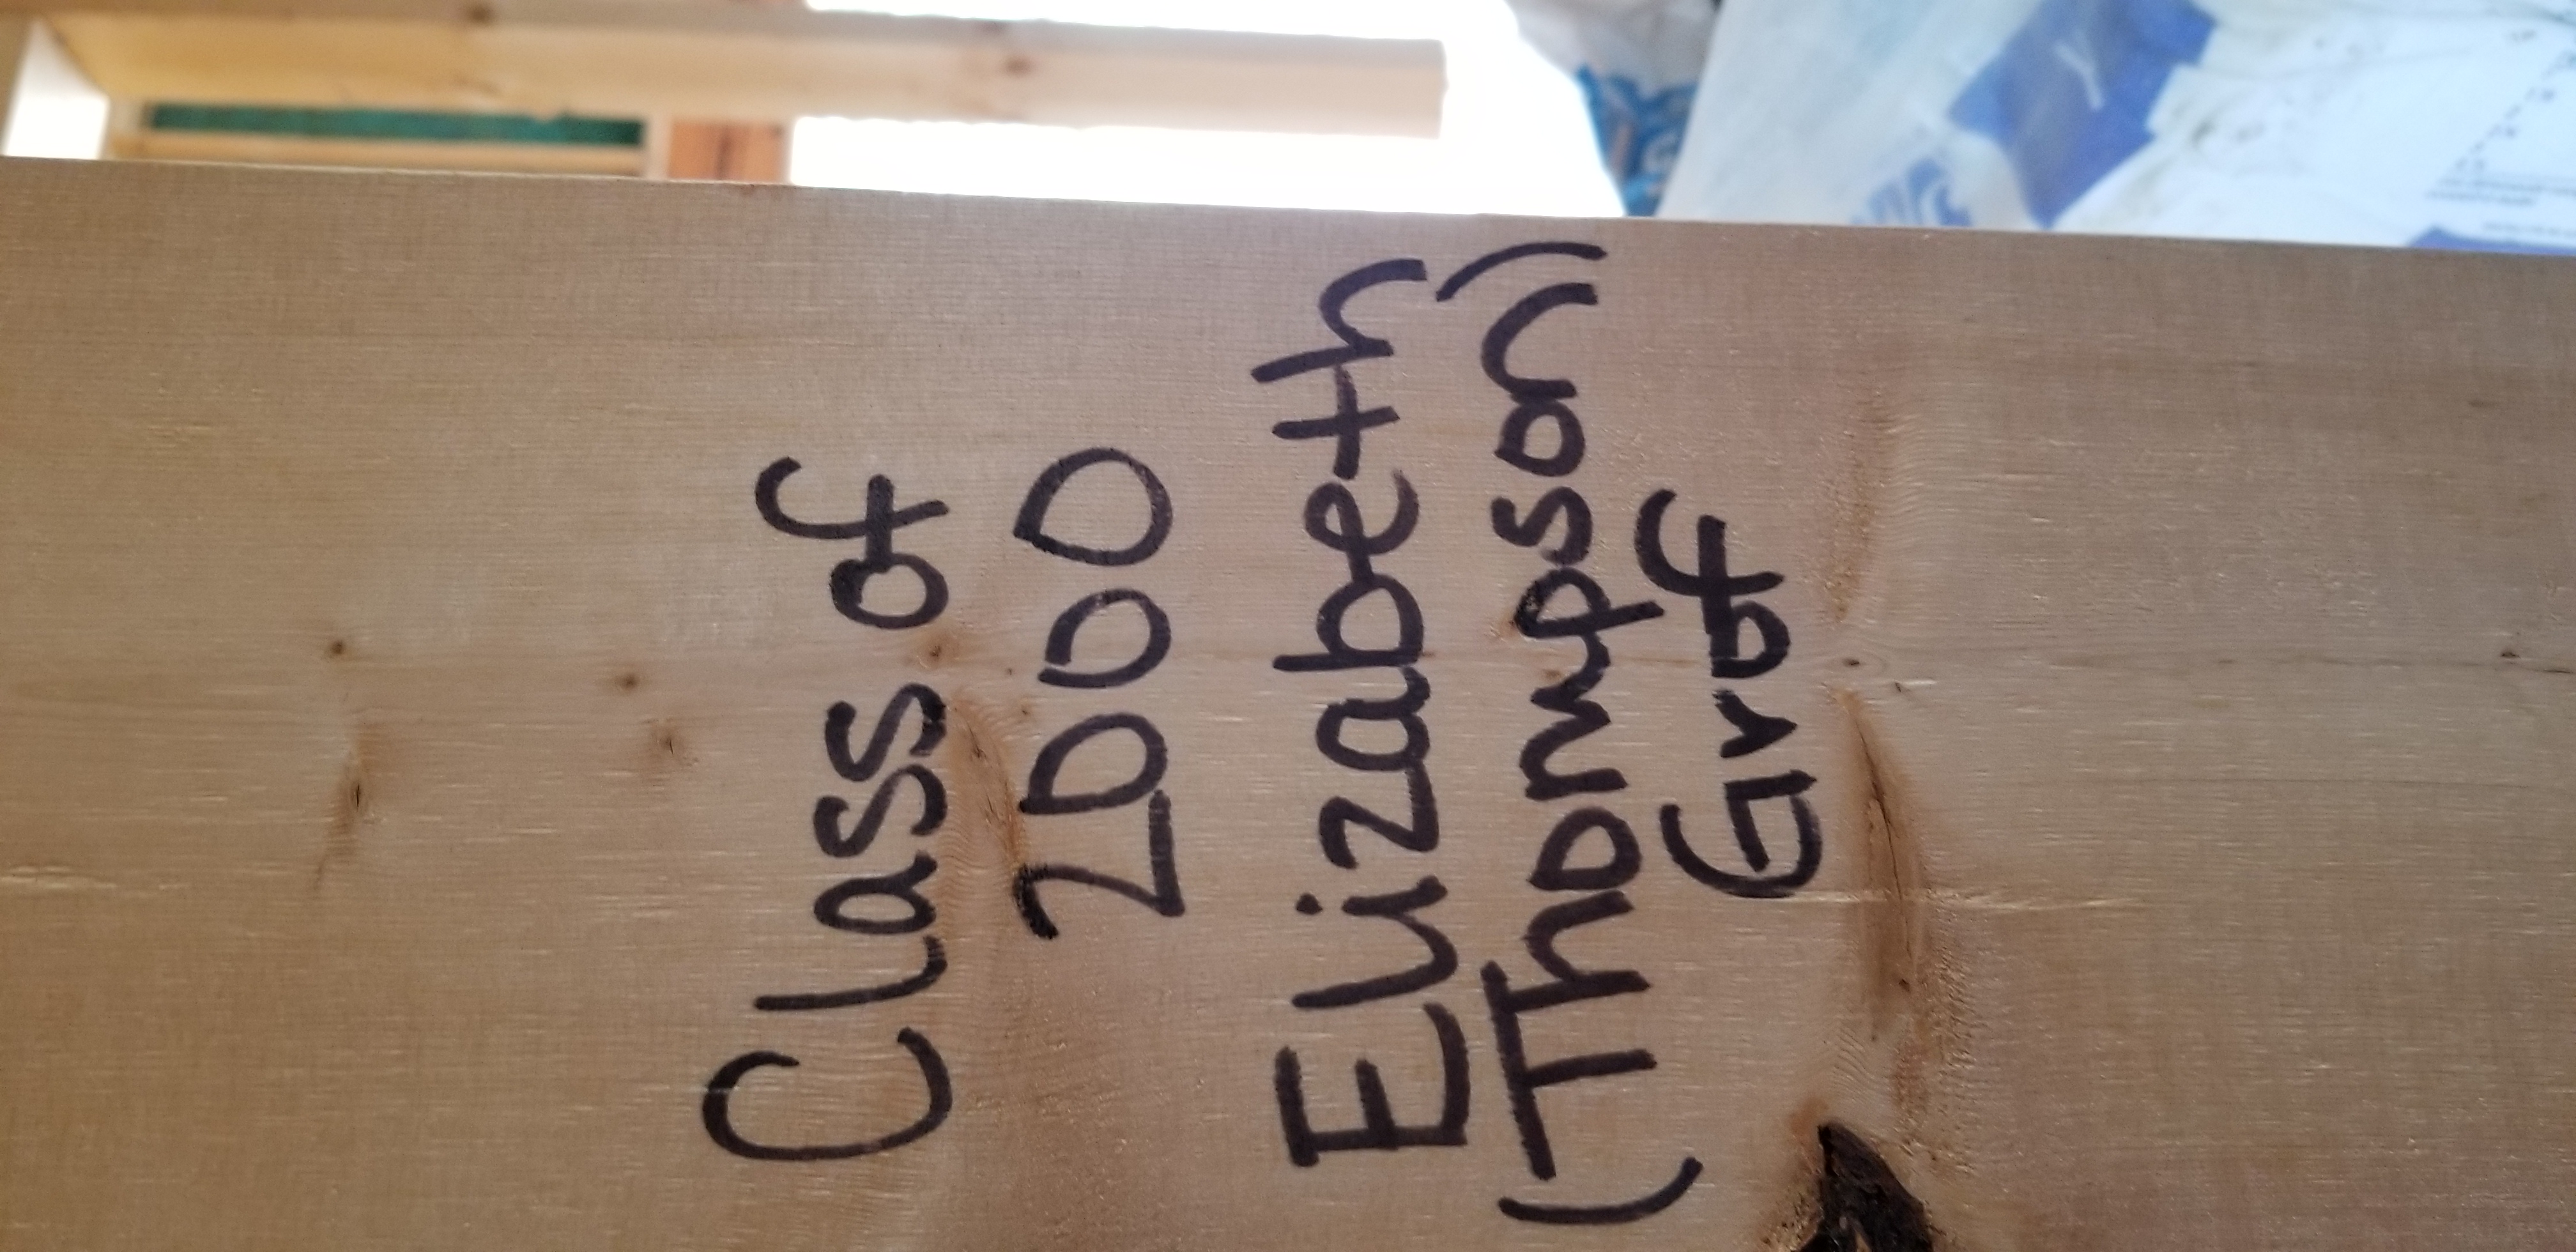 Class of
2000
Elizabeth
(Thompson)
Graf